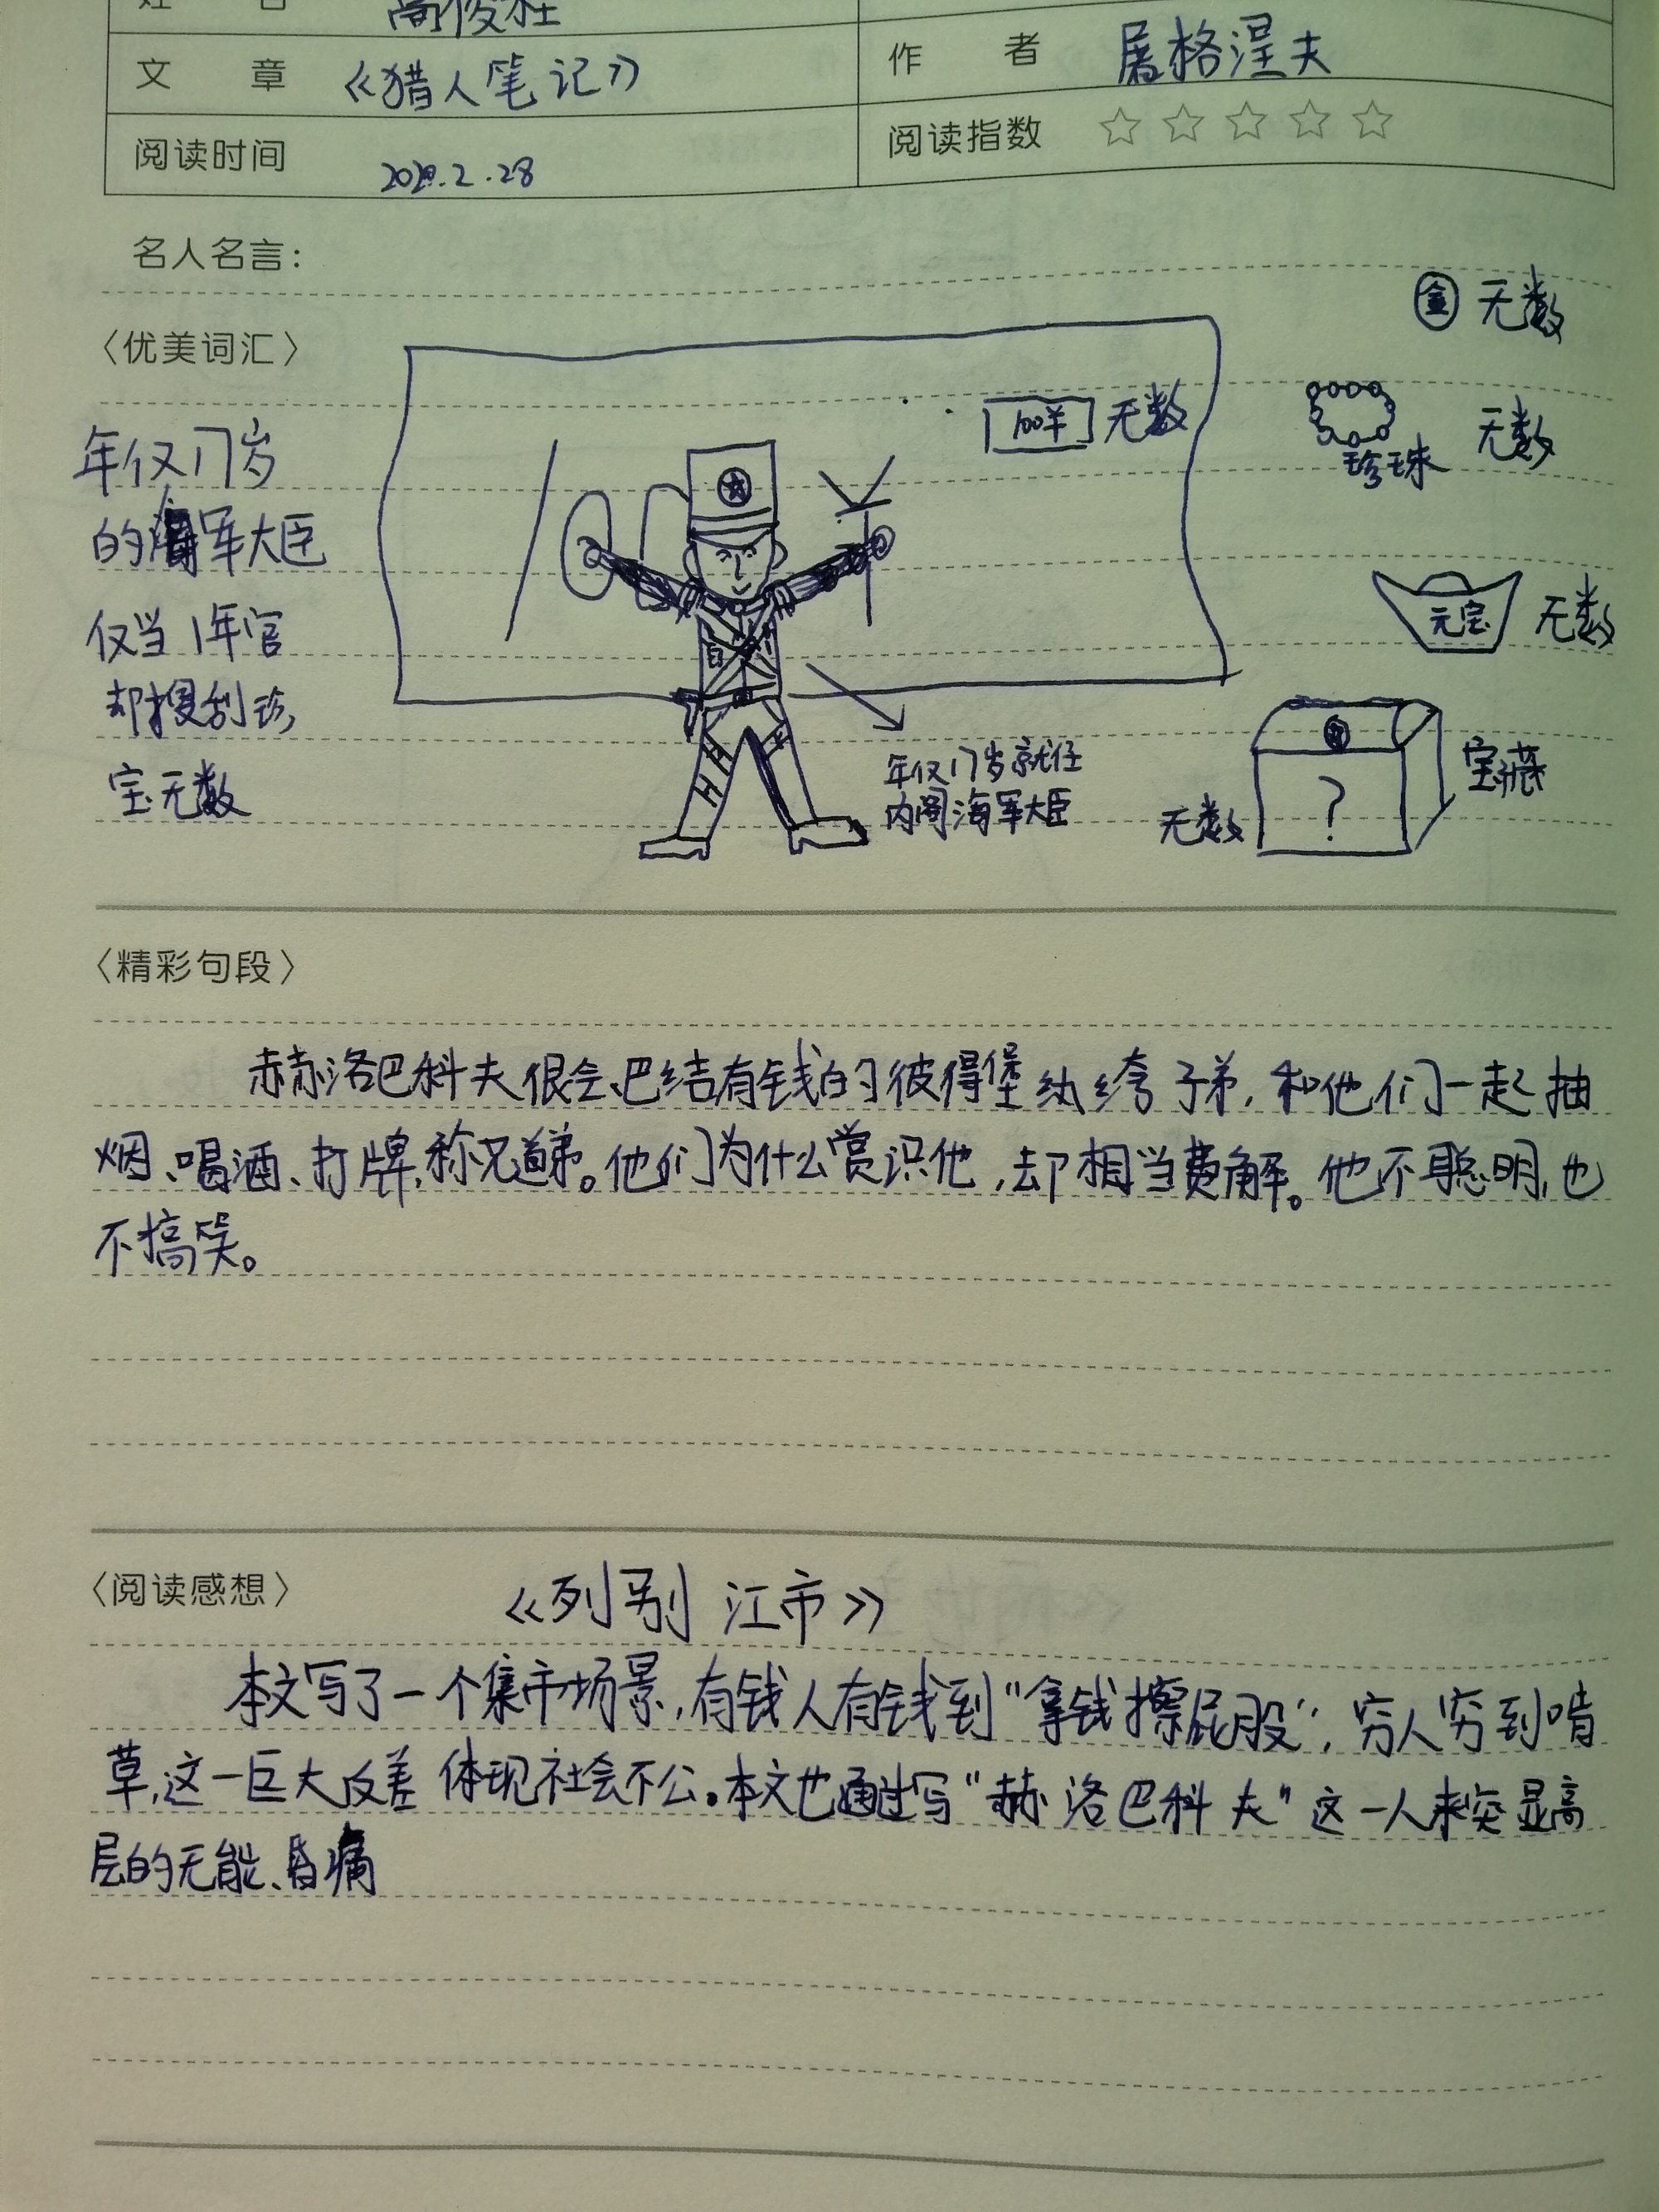 姓 名 高俊
文 章 《猎人笔记》 作 者 屠格涅夫
阅读时间 2020.2.28 阅读指数 ☆☆☆☆☆
名人名言：
金 无数
〈优美词汇〉
100羊 无数
珍珠 无数
年仅17岁
的海军大臣
仅当1年官
却搜刮珍
宝无数
元宝 无数
年仅17岁就任
内阁海军大臣
无数 ? 宝藏
〈精彩句段〉
赫洛巴科夫很会巴结有钱的彼得堡纨绔子弟，和他们一起抽
烟、喝酒、打牌，称兄道弟。他们为什么赏识他，却相当费解。他不聪明，也
不搞笑。
〈阅读感想〉 《列别江市》
本文写了一个集市场景，有钱人有钱到“拿钱擦屁股”，穷人穷到啃
草，这一巨大反差体现社会不公。本文也通过写“赫洛巴科夫”这一人来突显高
层的无能、昏